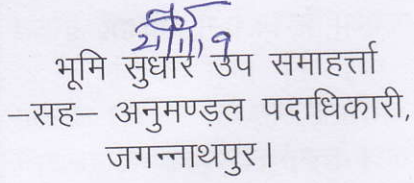 भूमि सुधार उप समाहर्त्ता
–सह– अनुमण्ड़ल पदाधिकारी,
जगन्नाथपुर।